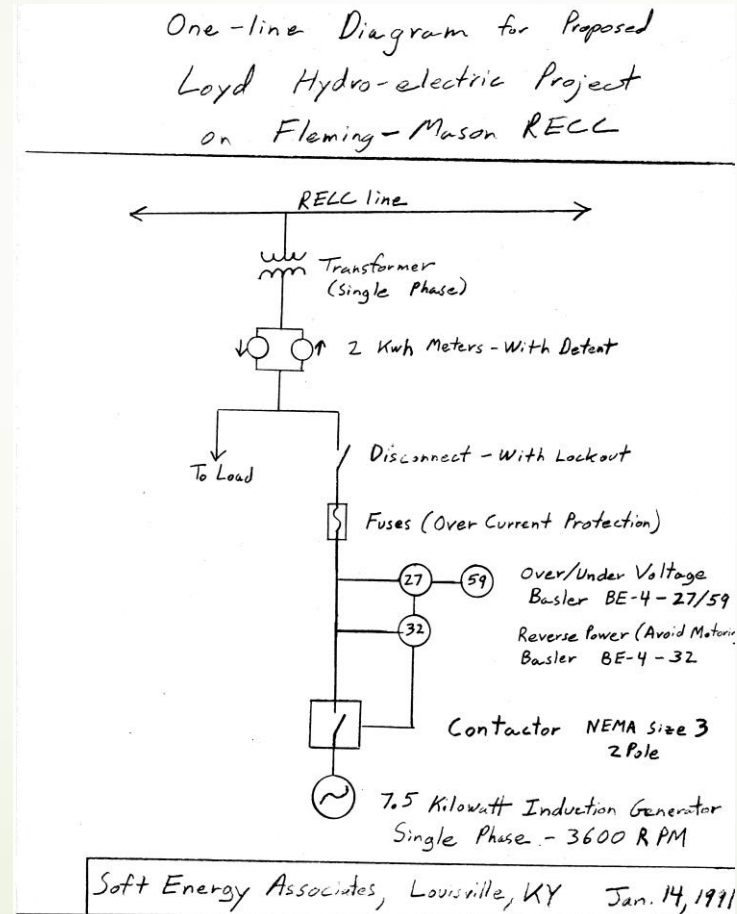 One-line Diagram for Proposed
Loyd Hydro-electric Project
on Fleming-Mason RECC
RECC line
Transformer
(Single Phase)
2 Kwh Meters - With Detent
To Load
Disconnect - With Lockout
Fuses (Over Current Protection)
27
59
Over/Under Voltage
Basler BE-4-27/59
32
Reverse Power (Avoid Motorin
Basler BE-4-32
Contactor NEMA Size 3
2 Pole
7.5 Kilowatt Induction Generator
Single Phase - 3600 RPM
Soft Energy Associates, Louisville, KY Jan. 14, 1991